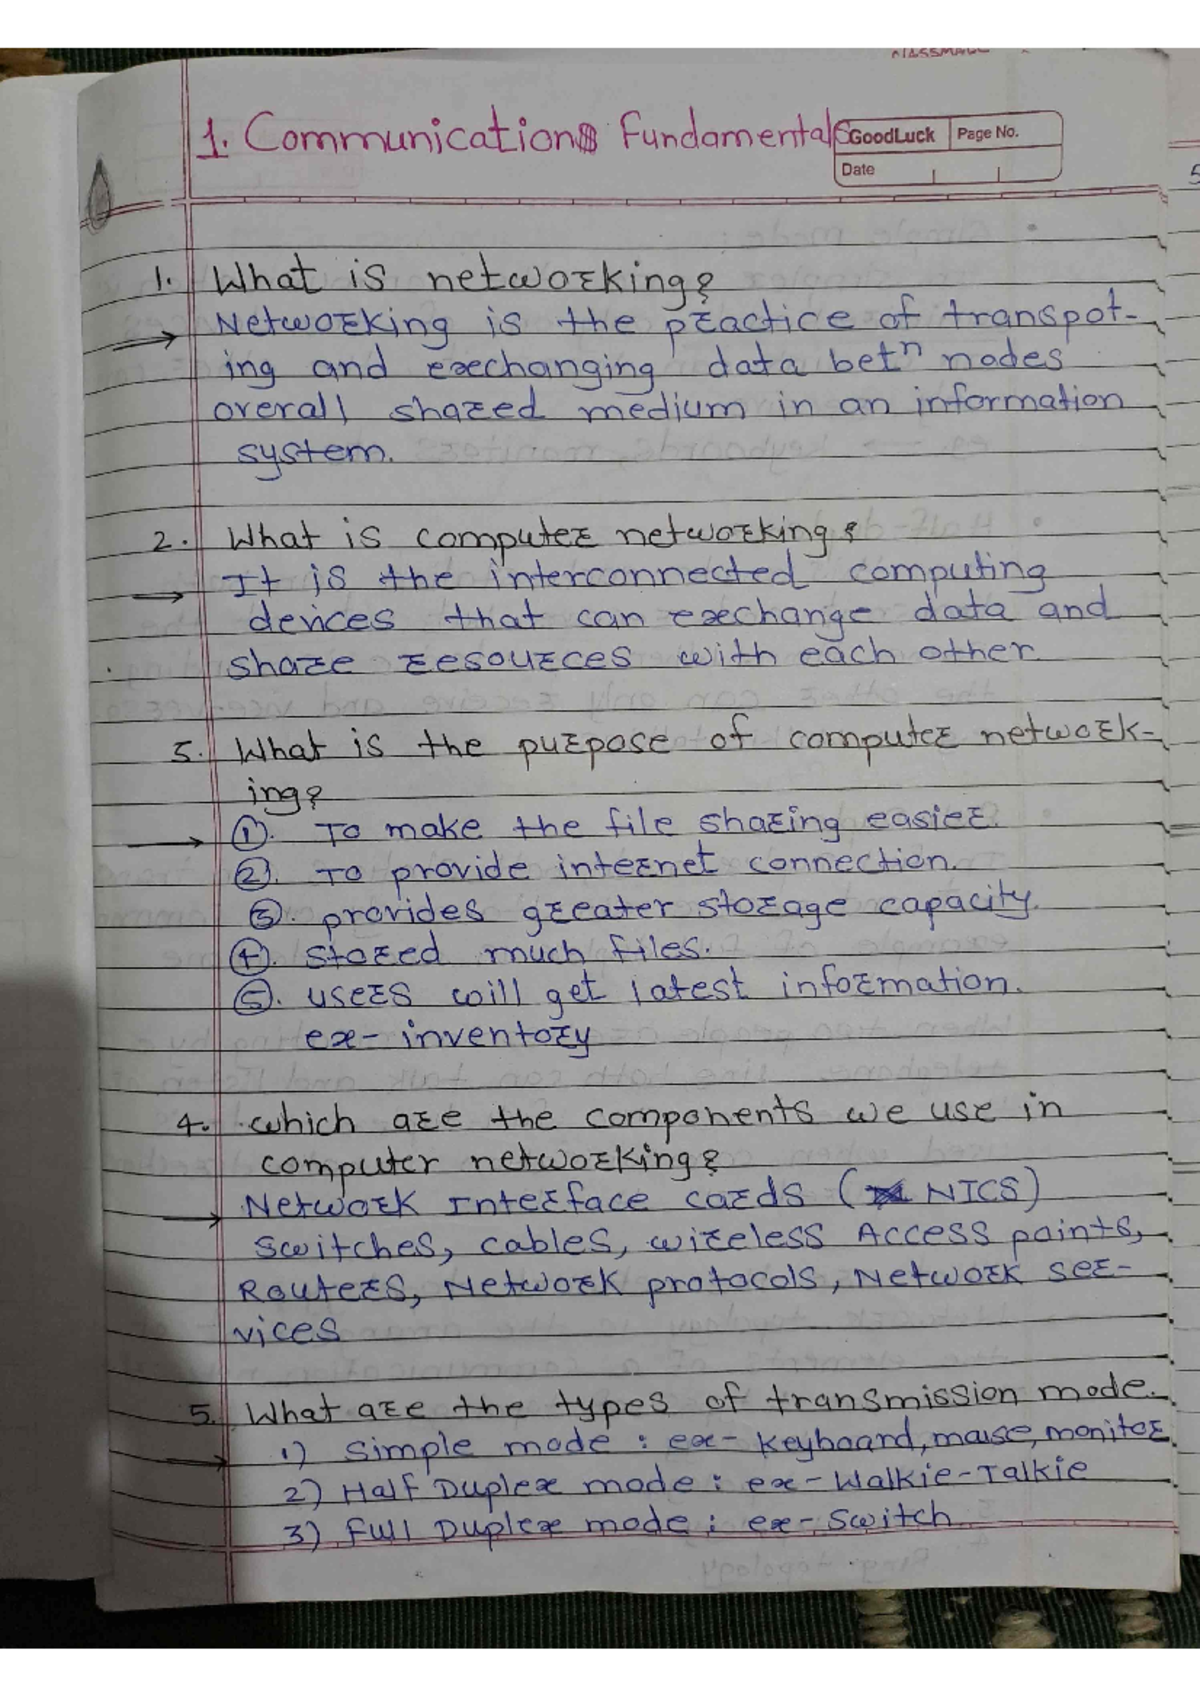 1. Communications Fundamentals
GoodLuck Page No.
Date
1. What is networking?
Networking is the practice of transpot-
ing and exechanging data betn nodes
overall shared medium in an information
system.
2. What is computer networking?
It is the interconnected computing
devices that can exechange data and
share resources with each other.
3. What is the purpose of computer network-
ing?
→ ①. To make the file sharing easier.
②. To provide internet connection.
③. provides greater storage capacity.
④. stored much files.
⑤. users will get latest information.
ex- inventory
4. which are the components we use in
computer networking?
→ Network Interface cards ( NICS)
switches, cables, wireless Access points,
Routers, Network protocols, Network ser-
vices
5. What are the types of transmission mode.
→ 1) Simple mode : ex- keyboard, mouse, monitor
2) Half Duplex mode : ex- Walkie-Talkie
3) Full Duplex mode : ex- Switch